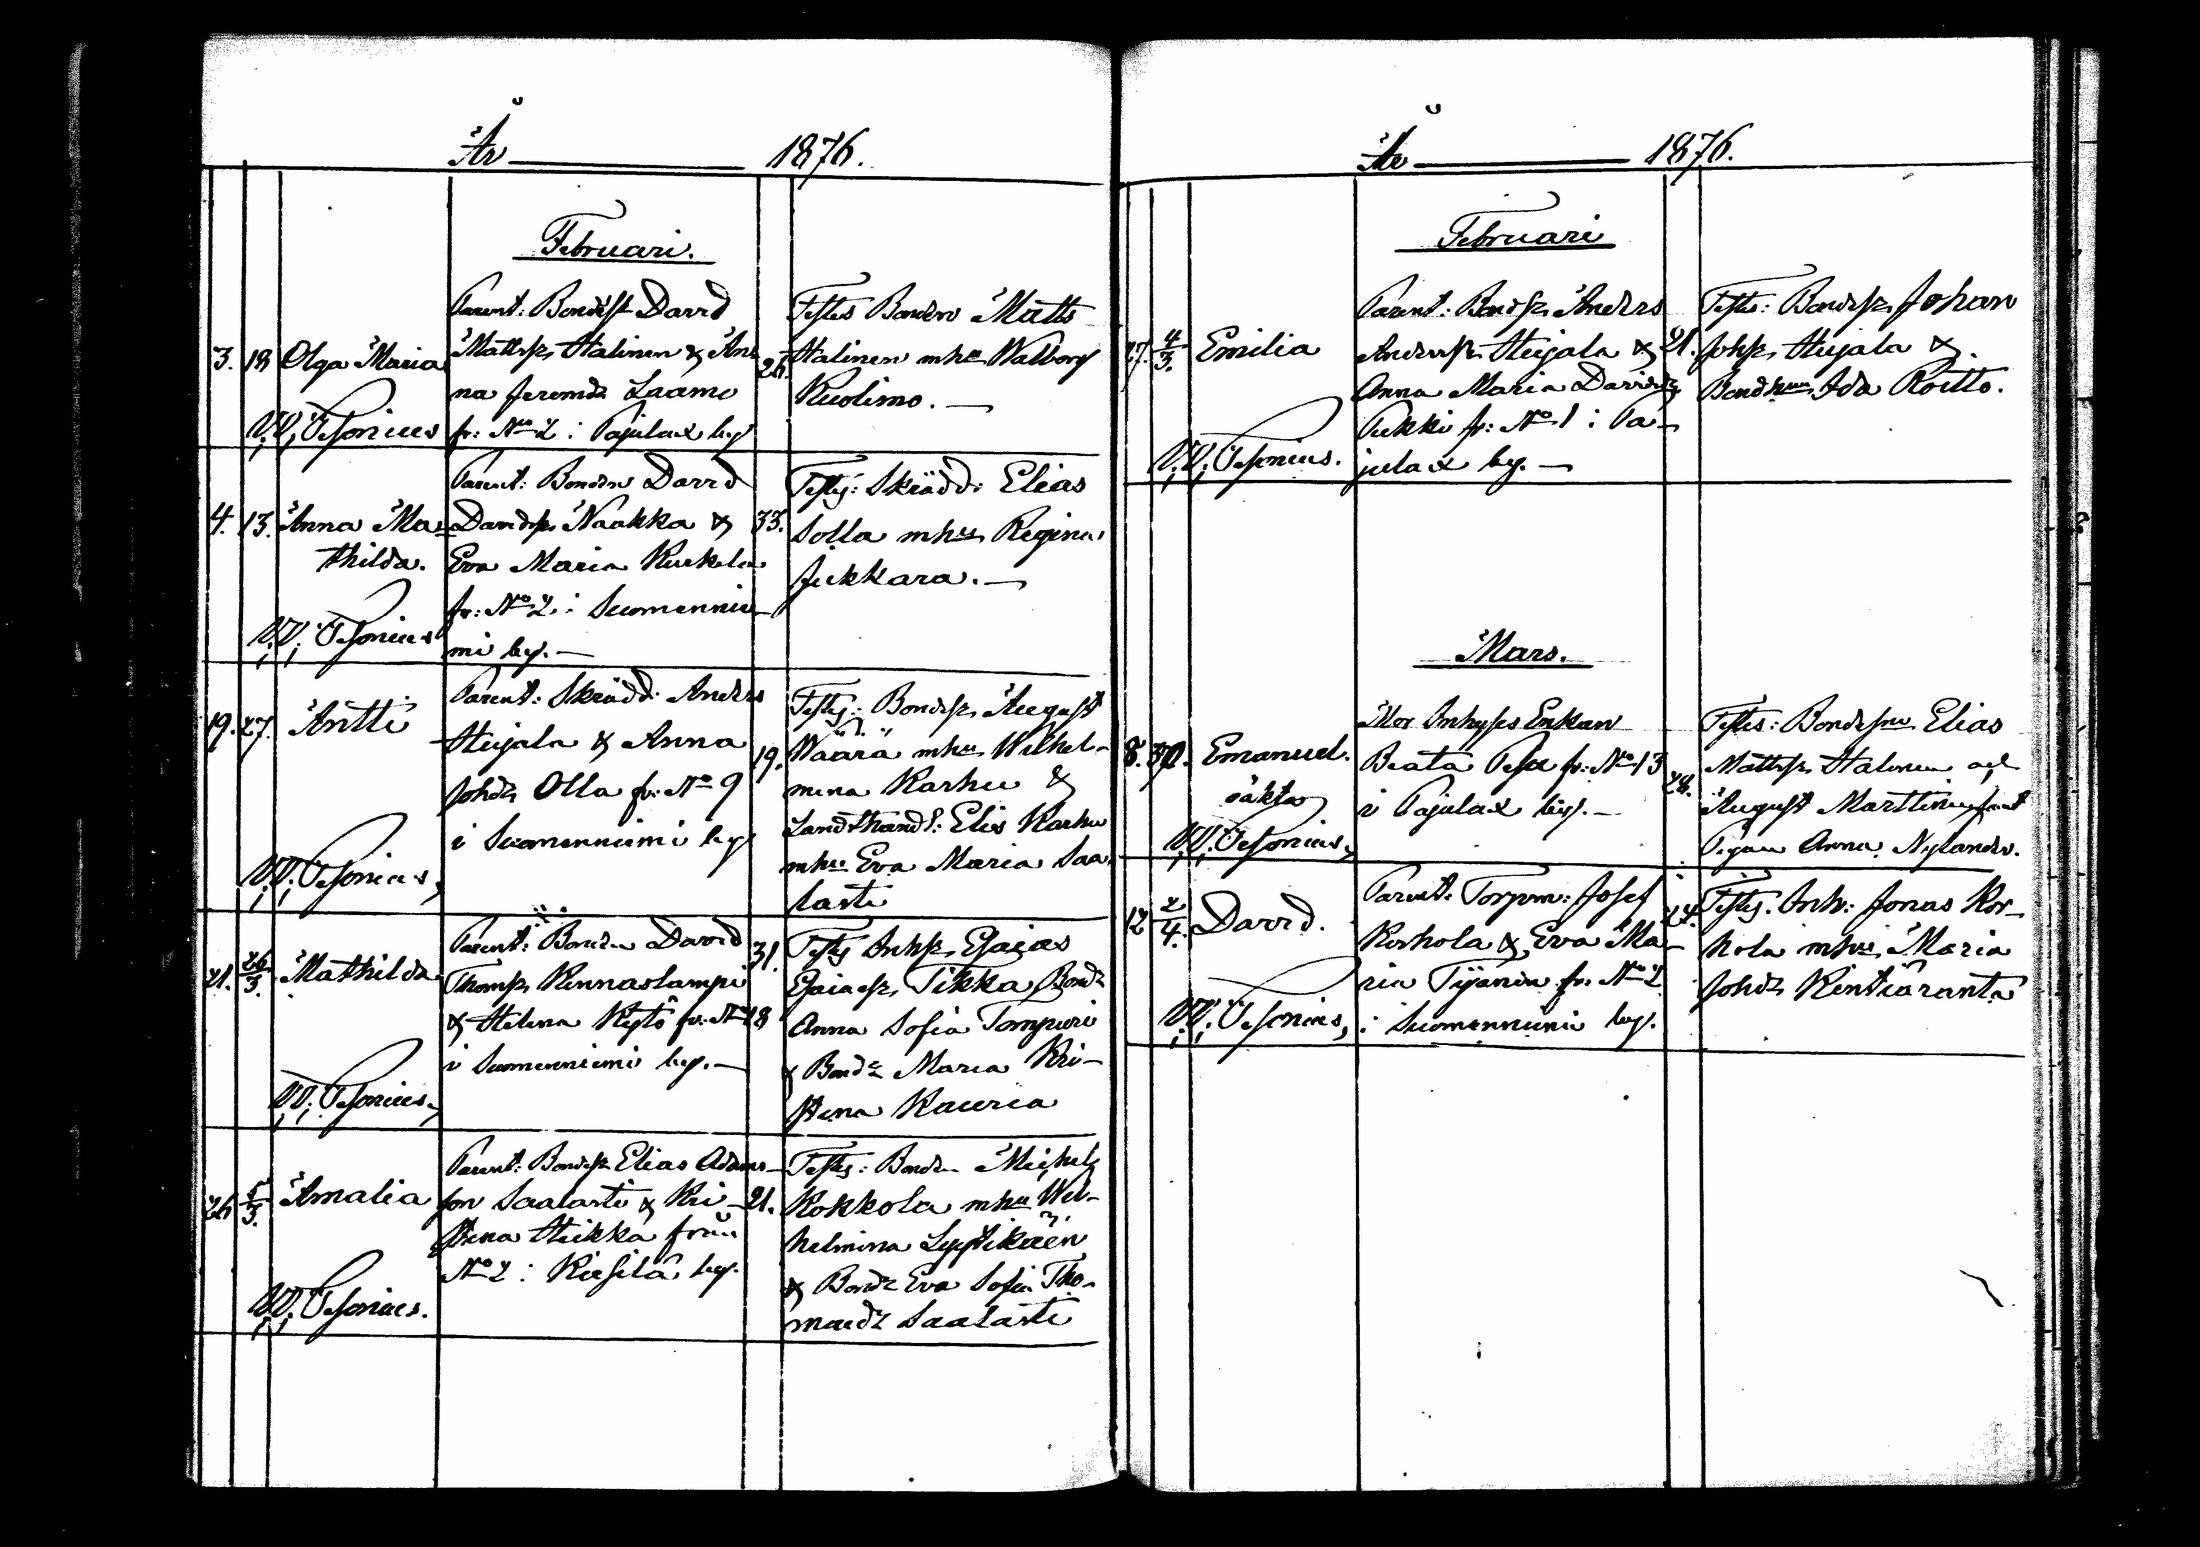 År 1876.
Februari.
3. 18 Olga Maria
Parent: Bondess. David
Mattss. Halinen & An-
na Jeremd. Laamo
fr: No 2 i Pajulax by
26.
Testes Bonden Matts
Halinen m hu Walborg
Kuolimo. —
4. 13. Anna Ma-
thilda.
Parent: Bonden David
Davidss. Naakka &
Eva Maria Kurkela
fr: No 2 i Suomennie-
mi by. —
33.
Testes: Skrädd: Elias
Solla m hu Regina
Jukkara. —
19. 27. Antti
Parent: Skrädd: Anders
Hujala & Anna
Johsd. Olla fr: No 9
i Suomenniemi by
19.
Testes: Bondess. August
Väärä m hu Wilhel-
mina Karhu &
Landthandl: Elis Karhu
m hu Eva Maria Saa-
lasti
21. 26/3. Mathilda
Parent: Bonden David
Thomss. Rennaslampi
& Helena Kytö fr: No 18
i Suomenniemi by. —
31.
Testes Inhs. Esaias
Esaiass. Tikka Bondd.
Anna Sofia Tompuri
& Bondd. Maria Kri-
stina Kauria
26 5/3. Amalia
Parent: Bondess. Elias Adams-
son Saalasti & Kri-
stina Heikka från
No 2 i Kiesilä by.
21.
Testes: Bonden Michel
Kokkola m hu Wil-
helmina Lyytikäin
& Bondd. Eva Sofia Tho-
masd. Saalasti
År 1876.
Februari
27. 4/3. Emilia
Parent: Bondss. Anders
Anderss. Hujala &
Anna Maria Davidsd.
Pukki fr: No 1 i Pa-
julax by. —
21.
Testes: Bondess. Johan
Johss. Hujala &
Bondhuu Ida Roitto.
Mars.
8. Emanuel.
oäkta
Mor Inhyses Enkan
Beata fr: No 13
i Pajulax by. —
28.
Testes: Bondesone Elias
Mattss. Halinen och
August Marttinen samt
Pigan Anna Nylander.
12 2/4. David.
Parent: Torpm: Josef
Korhola & Eva Ma-
ria Tijanen fr: No 2
i Suomenniemi by.
Testes. Inh: Jonas Kor-
hola m hu Maria
Johsd. Rintäranta